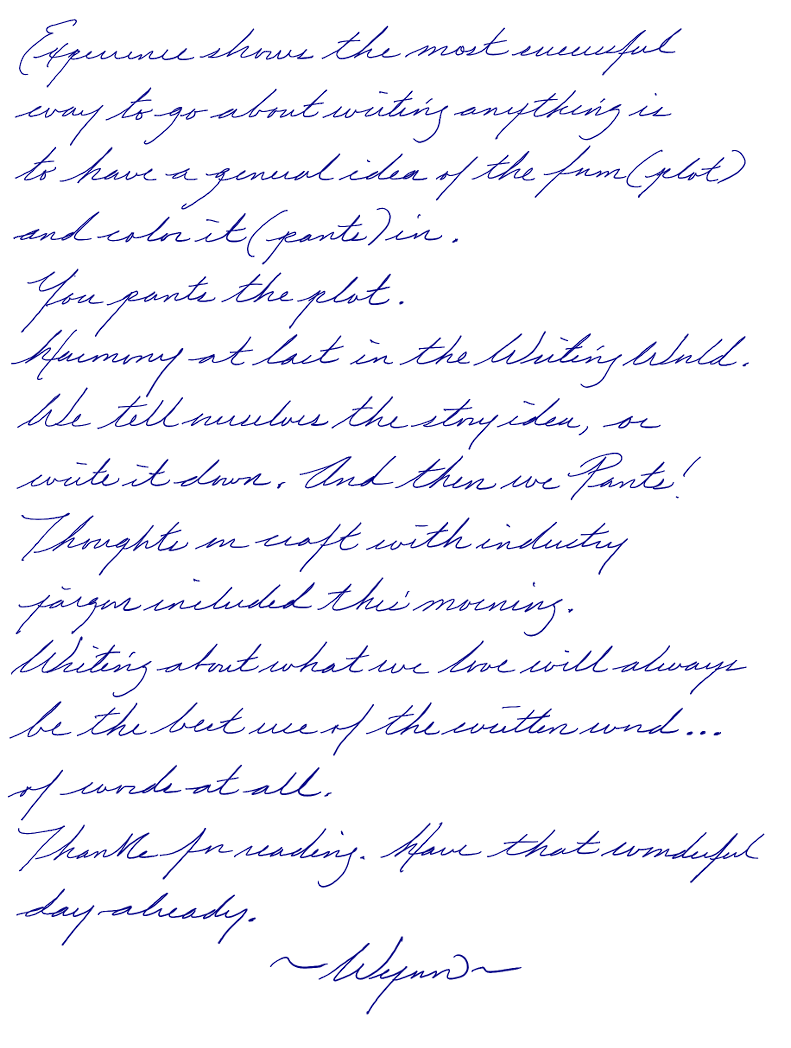 Experience shows the most successful
way to go about writing anything is
to have a general idea of the form (plot)
and color it (pants) in.
You pants the plot.
Harmony at last in the Writing World.
We tell ourselves the story idea, or
write it down. And then we Pants!
Thoughts on craft with industry
jargon included this morning.
Writing about what we love will always
be the best use of the written word...
of words at all.
Thanks for reading. Have that wonderful
day already.
~Wynn~